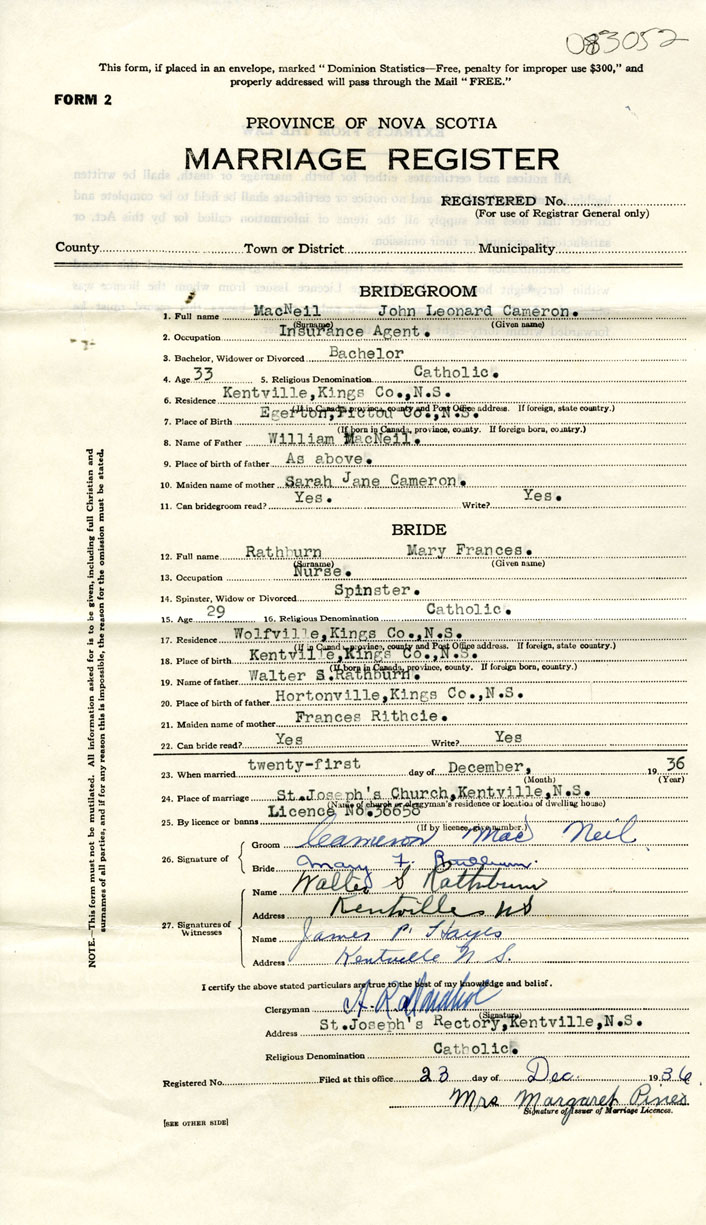 083052
This form, if placed in an envelope, marked "Dominion Statistics—Free, penalty for improper use $300," and
properly addressed will pass through the Mail "FREE."
FORM 2
PROVINCE OF NOVA SCOTIA
MARRIAGE REGISTER
REGISTERED No.
(For use of Registrar General only)
County Town or District Municipality
BRIDEGROOM
1. Full name MacNeil John Leonard Cameron.
(Surname) (Given name)
2. Occupation Insurance Agent.
3. Bachelor, Widower or Divorced Bachelor
4. Age 33 5. Religious Denomination Catholic.
6. Residence Kentville,Kings Co.,N.S.
(If in Canada, province, county and Post Office address. If foreign, state country.)
7. Place of Birth Egerton,Pictou Co.,N.S.
(If born in Canada, province, county. If foreign born, country.)
8. Name of Father William MacNeil.
9. Place of birth of father As above.
10. Maiden name of mother Sarah Jane Cameron.
11. Can bridegroom read? Yes. Write? Yes.
BRIDE
12. Full name Rathburn Mary Frances.
(Surname) (Given name)
13. Occupation Nurse.
14. Spinster, Widow or Divorced Spinster.
15. Age 29 16. Religious Denomination Catholic.
17. Residence Wolfville,Kings Co.,N.S.
(If in Canada, province, county and Post Office address. If foreign, state country.)
18. Place of birth Kentville,Kings Co.,N.S.
(If born in Canada, province, county. If foreign born, country.)
19. Name of father Walter S.Rathburn.
20. Place of birth of father Hortonville,Kings Co.,N.S.
21. Maiden name of mother Frances Rithcie.
22. Can bride read? Yes Write? Yes
23. When married twenty-first day of December, 1936
(Month) (Year)
24. Place of marriage St.Joseph's Church,Kentville,N.S.
(Name of church or clergyman's residence or location of dwelling house)
25. By licence or banns Licence No.36658
(If by licence, give number.)
26. Signature of Groom Cameron Mac Neil
Bride Mary F. Rathburn.
27. Signatures of Witnesses
Name Walter S Rathburn
Address Kentville NS
Name James P. Hayes
Address Kentville N.S.
I certify the above stated particulars are true to the best of my knowledge and belief.
Clergyman
(Signature)
Address St.Joseph's Rectory,Kentville,N.S.
Religious Denomination Catholic.
Registered No. Filed at this office 23 day of Dec. 1936
Mrs Margaret Pines
Signature of Issuer of Marriage Licences.
[SEE OTHER SIDE]
NOTE.—This form must not be mutilated. All information asked for is to be given, including full Christian and
surnames of all parties, and if for any reason this is impossible, the reason for the omission must be stated.